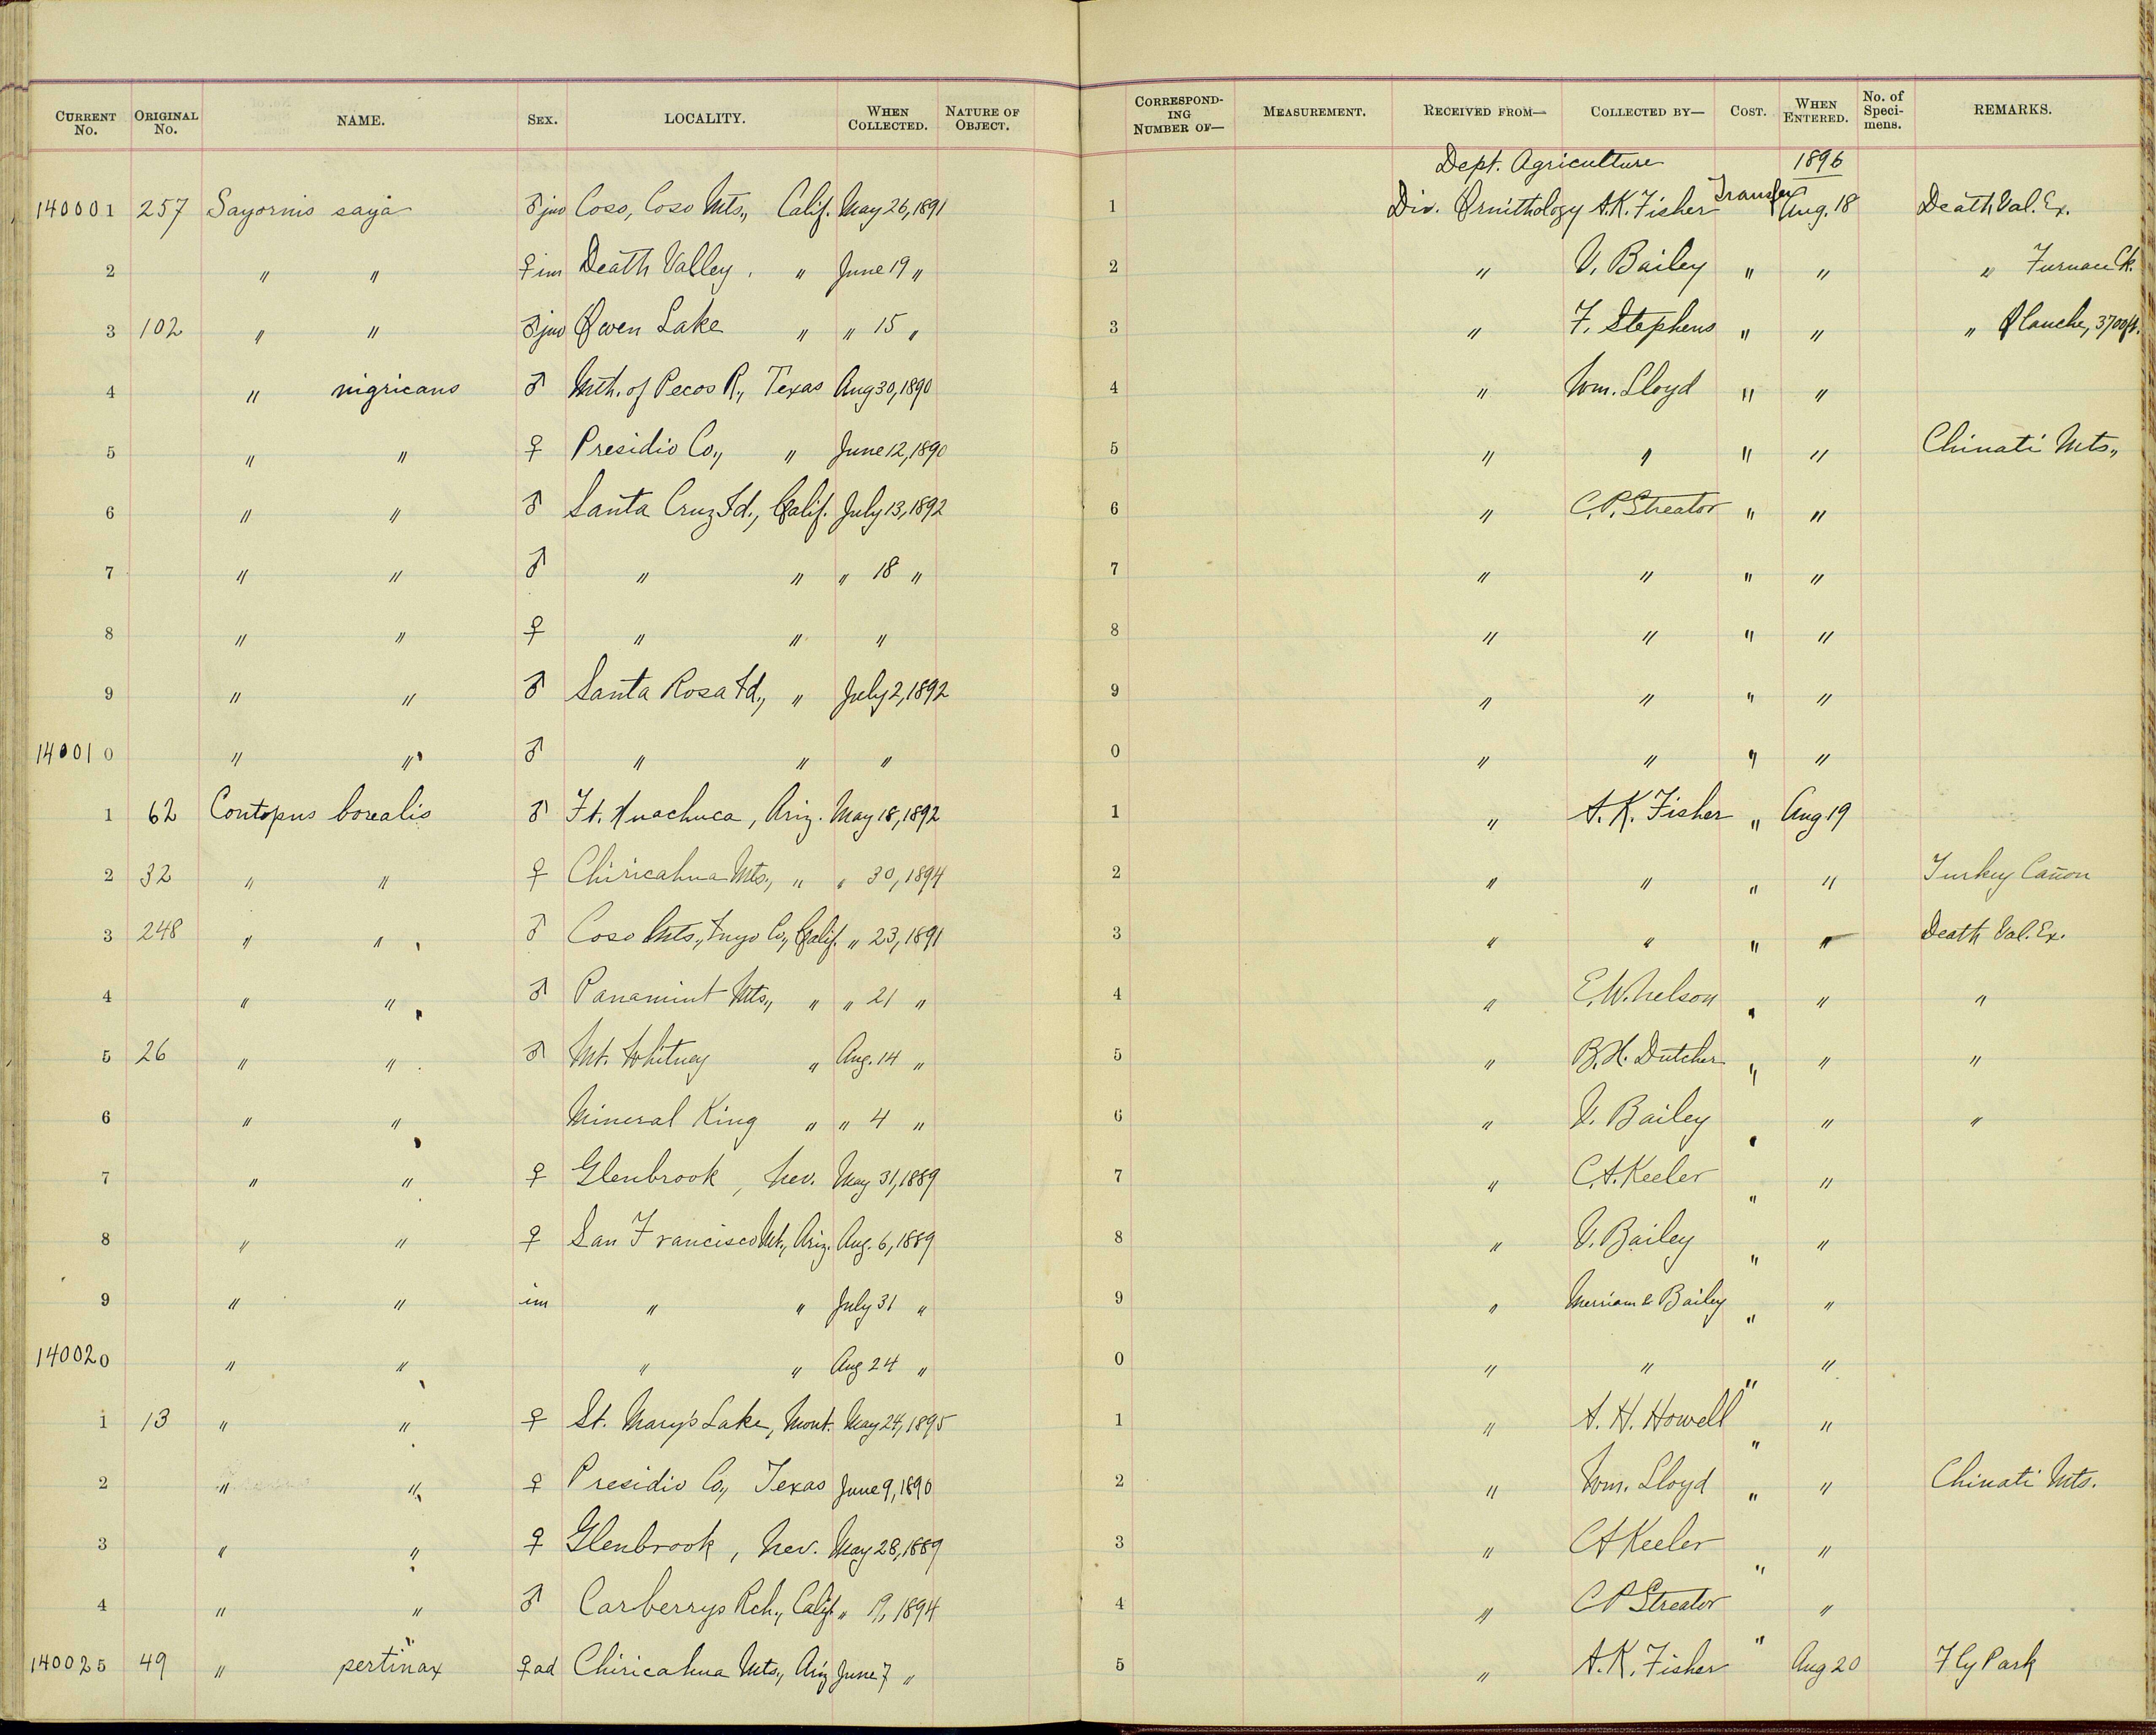 CURRENT No. ORIGINAL No. NAME. SEX. LOCALITY. WHEN COLLECTED. NATURE OF OBJECT. CORRESPONDING NUMBER OF— MEASUREMENT. RECEIVED FROM— COLLECTED BY— COST. WHEN ENTERED. No. of Specimens. REMARKS.
Dept. Agriculture 1896
140001 257 Sayornis saya ♂ juv Coso, Coso Mts., Calif. May 26, 1891 1 Div. Ornithology A.K. Fisher Transfer Aug. 18 Death Val. Ex.
2 " " ♀ im Death Valley, " June 19 " 2 " V. Bailey " " " Furnace Ck.
3 102 " " ♂ juv Owen Lake " " 15 " 3 " F. Stephens " " " Olanche, 3700 ft.
4 " nigricans ♂ Mth. of Pecos R., Texas Aug 30, 1890 4 " Wm. Lloyd " "
5 " " ♀ Presidio Co., " June 12, 1890 5 " " " " Chinati Mts.,
6 " " ♂ Santa Cruz Id., Calif. July 13, 1892 6 " C.P. Streator " "
7 " " ♂ " " " 18 " 7 " " " "
8 " " ♀ " " " 8 " " " "
9 " " ♂ Santa Rosa Id., " July 2, 1892 9 " " " "
140010 " " ♂ " " " 0 " " " "
1 62 Contopus borealis ♂ Ft. Huachuca, Ariz. May 18, 1892 1 " A.K. Fisher " Aug 19
2 32 " " ♀ Chiricahua Mts., " " 30, 1894 2 " " " " Turkey Cañon
3 248 " " ♂ Coso Mts., Inyo Co., Calif. " 23, 1891 3 " " " " Death Val. Ex.
4 " " ♂ Panamint Mts., " " 21 " 4 " E.W. Nelson " " "
5 26 " " ♂ Mt. Whitney " Aug. 14 " 5 " B.H. Dutcher " " "
6 " " Mineral King " " 4 " 6 " V. Bailey " " "
7 " " ♀ Glenbrook, Nev. May 31, 1889 7 " C.A. Keeler " "
8 " " ♀ San Francisco Mt., Ariz. Aug. 6, 1889 8 " V. Bailey " "
9 " " im " " July 31 " 9 " Merriam & Bailey " "
140020 " " " " Aug 24 " 0 " " " "
1 13 " " ♀ St. Mary's Lake, Mont. May 24, 1895 1 " A.H. Howell " "
2 " " ♀ Presidio Co., Texas June 9, 1890 2 " Wm. Lloyd " " Chinati Mts.
3 " " ♀ Glenbrook, Nev. May 28, 1889 3 " C A Keeler " "
4 " " ♂ Carberrys Rch., Calif. " 19, 1894 4 " C P Streator " "
140025 49 " pertinax ♀ ad Chiricahua Mts., Ariz June 7 " 5 " A.K. Fisher " Aug 20 Fly Park